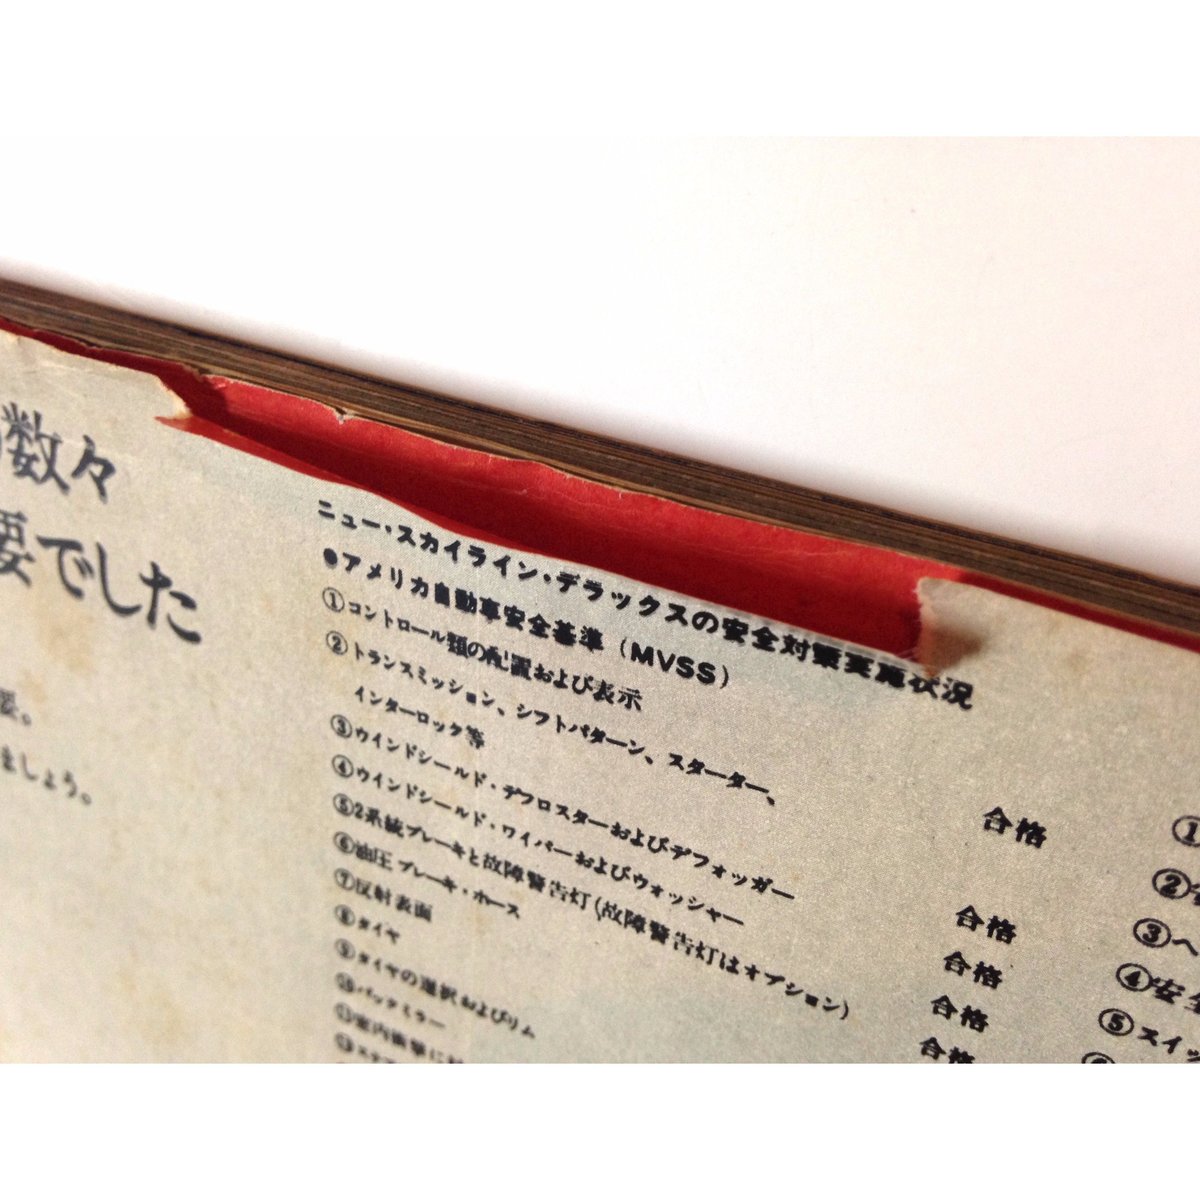 数々
要でした
要。
ましょう。
ニュー・スカイライン・デラックスの安全対策実施状況
●アメリカ自動車安全基準（MVSS）
①コントロール類の配置および表示
②トランスミッション、シフトパターン、スターター、
インターロック等
合格
③ウインドシールド・デフロスターおよびデフォッガー
合格
④ウインドシールド・ワイパーおよびウォッシャー
合格
⑤2系統ブレーキと故障警告灯(故障警告灯はオプション)
合格
⑥油圧ブレーキ・ホース
合格
⑦反射表面
⑧タイヤ
⑨タイヤの選択およびリム
⑩バックミラー
⑪室内衝撃に
①
②
③ヘ
④安全
⑤スイッ